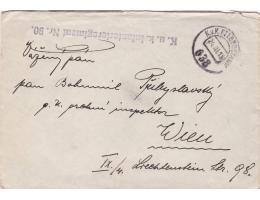 K. u. k. Infanterieregiment Nr. 90.
K.u.K. FELDPOSTAMT
630
Vážený pán
pan Bohumil Přibyslavský
p. n. probní inspektor
Wien
IX/4. Liechtenstein Str. 98.